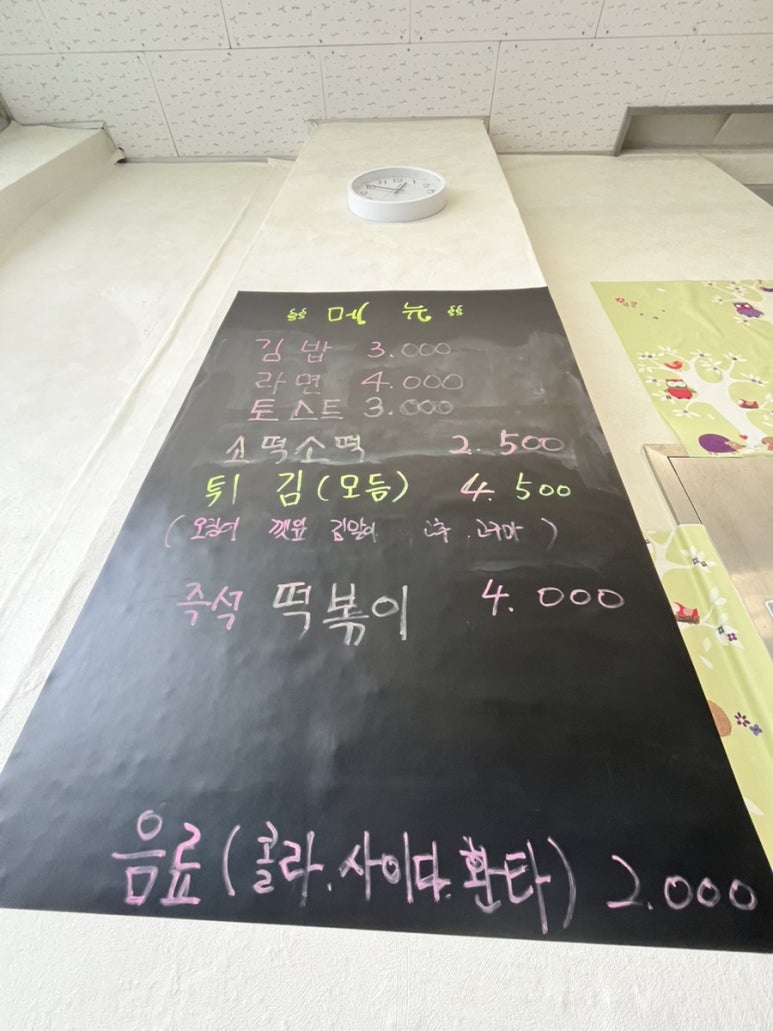 11 12 1
10 2
" 메뉴 "
김밥 3.000
라면 4.000
토스트 3.000
소떡소떡 2.500
튀김(모듬) 4.500
(오징어 깻잎 김말이 고추. 고구마)
즉석 떡볶이 4.000
음료(콜라.사이다.환타) 2.000